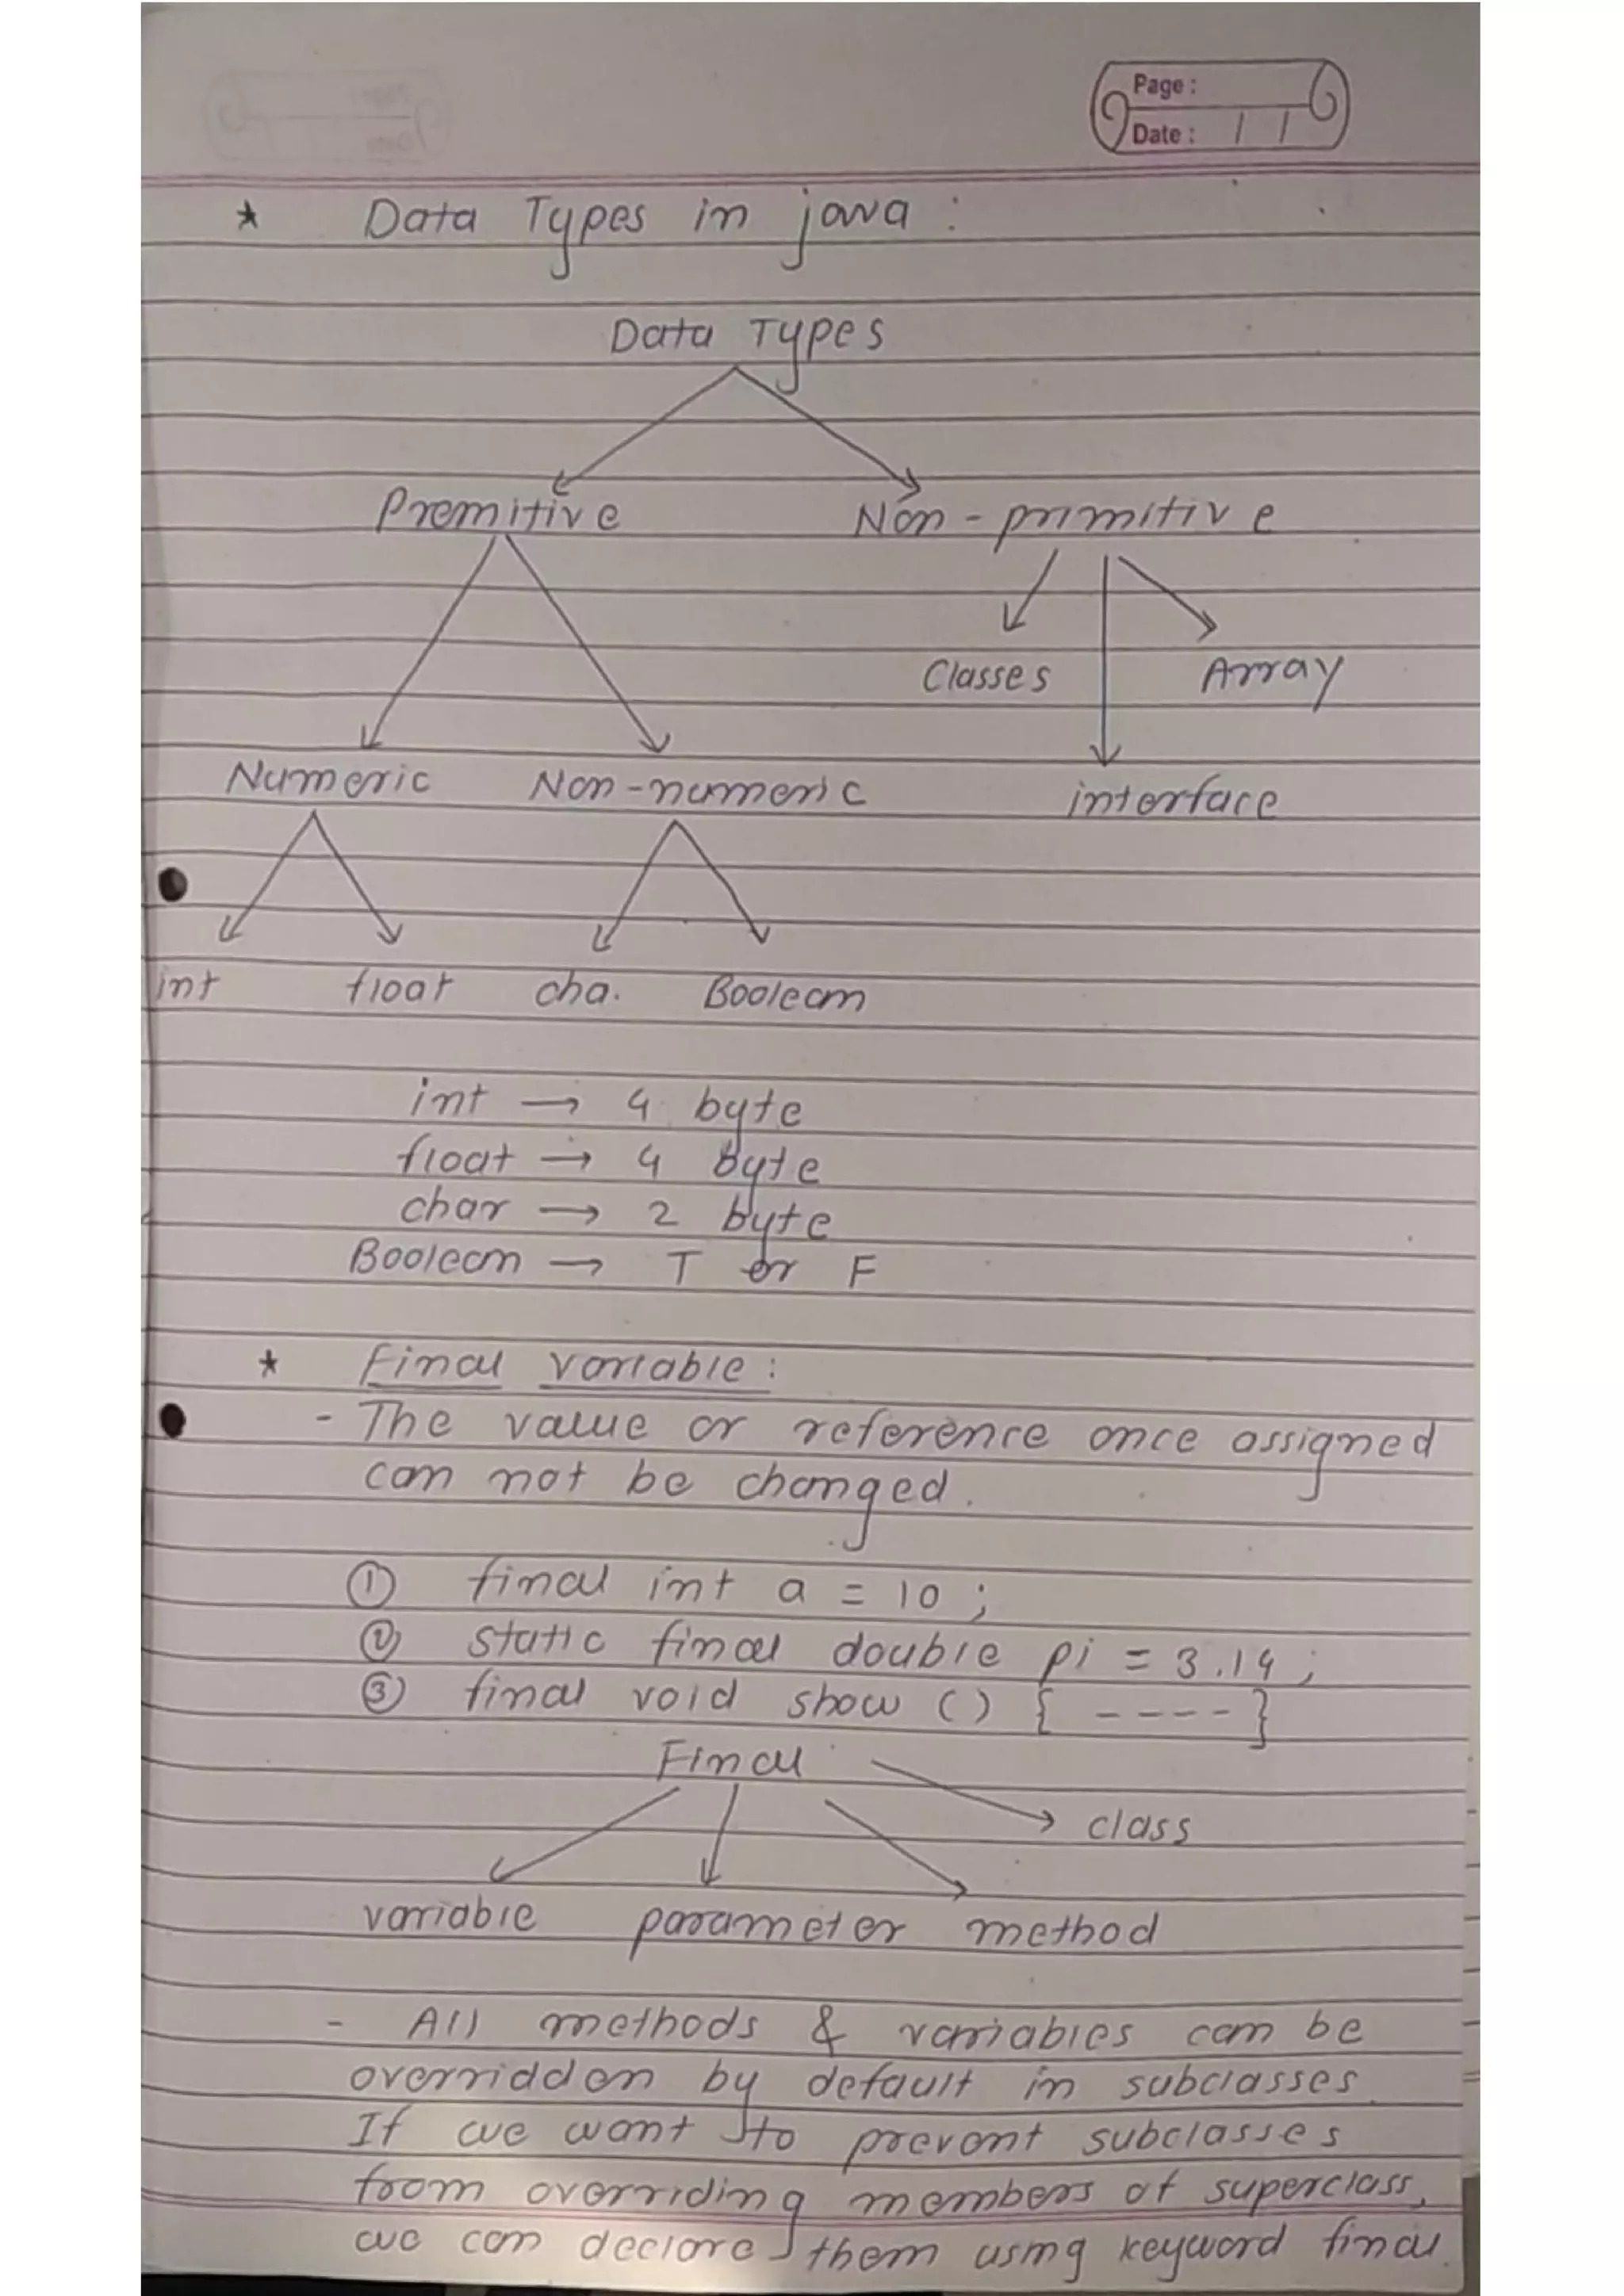 Page :
Date : / /
* Data Types in java :
Data Types
Premitive Non-primitive
Classes Array
Numeric Non-numeric interface
int float cha. Boolean
int → 4 byte
float → 4 byte
char → 2 byte
Boolean → T or F
* Final variable :
- The value or reference once assigned
can not be changed.
① final int a = 10 ;
② static final double pi = 3.14 ;
③ final void show () { ---- }
Final
class
variable parameter method
- All methods & variables can be
overridden by default in subclasses
If we want to prevent subclasses
from overriding members of superclass,
we can declare them using keyword final.